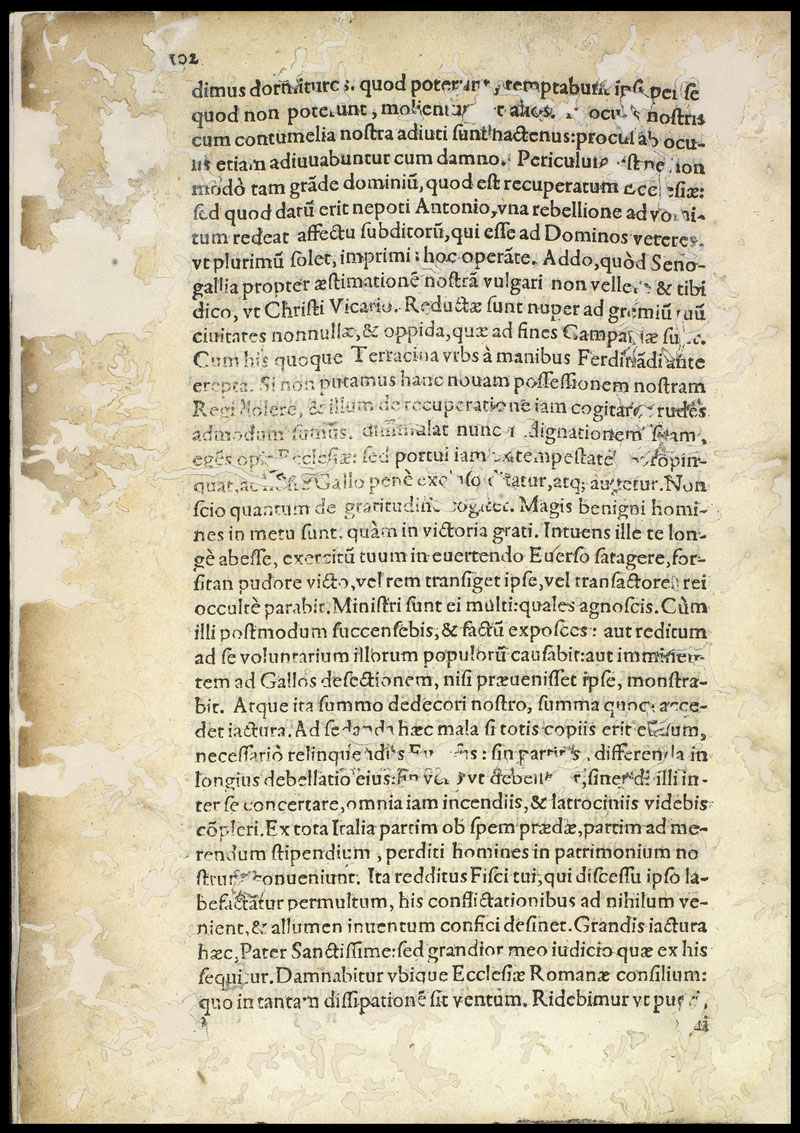 102
dimus dormituros. quod poterunt, temptabunt ipsi per se
quod non poterunt, oculis nostris
cum contumelia nostra adiuti sunt hactenus: procul ab ocu-
lis etiam adiuuabuntur cum damno. non
modò tam grãde dominiũ, quod est recuperatum ecclesiæ:
sed quod datũ erit nepoti Antonio, vna rebellione ad vomi-
tum redeat affectu subditorũ, qui esse ad Dominos veteres.
vt plurimũ solet, imprimi: hoc operãte. Addo, quòd Seno-
gallia propter æstimationẽ nostrã vulgari non & tibi
dico, vt Christi Vicario. Reductæ sunt nuper ad gremiũ tuũ
ciuitates nonnullæ, & oppida, quæ ad fines Campaniæ
Cum his quoque Terracina vrbs à manibus Ferdinãdi ante
erepta. Si non putamus hanc nouam possessionem nostram
Regi dolere, & illum de recuperatione iam cogitare: rudes
admodum sumus. dissimulat nunc indignationem suam,
egẽs Ecclesiæ: sed portui iam ex tempestate propin-
quat, Gallo penè atq; augetur. Non
scio quantum de gratitudine cogitet. Magis benigni homi-
nes in metu sunt, quàm in victoria grati. Intuens ille te lon-
gè abesse, exercitũ tuum in euertendo Euerso satagere, for-
sitan pudore victo, vel rem transiget ipse, vel transactores rei
occultè parabit. Ministri sunt ei multi: quales agnoscis. Cùm
illi postmodum succensebis, & factũ exposces: aut reditum
ad se voluntarium illorum populorũ causabit: aut imminen-
tem ad Gallos defectionem, nisi præuenisset ipse, monstra-
bit. Atque ita summo dedecori nostro, summa quoq; acce-
det iactura. Ad sedanda hæc mala si totis copiis erit
necessariò relinquendus: sin partitis, differenda in
longius debellatio eius: vt sinendi illi in-
ter se concertare, omnia iam incendiis, & latrociniis videbis
cõpleri. Ex tota Italia partim ob spem prædæ, partim ad me-
rendum stipendium, perditi homines in patrimonium no
strum conueniunt. Ita redditus Fisci tui, qui discessu ipso la-
befactãtur permultum, his conflictationibus ad nihilum ve-
nient, & allumen inuentum confici desinet. Grandis iactura
hæc, Pater Sanctissime: sed grandior meo iudicio quæ ex his
sequitur. Damnabitur vbique Ecclesiæ Romanæ consilium:
quo in tantam dissipationẽ sit ventum. Ridebimur vt pueri,